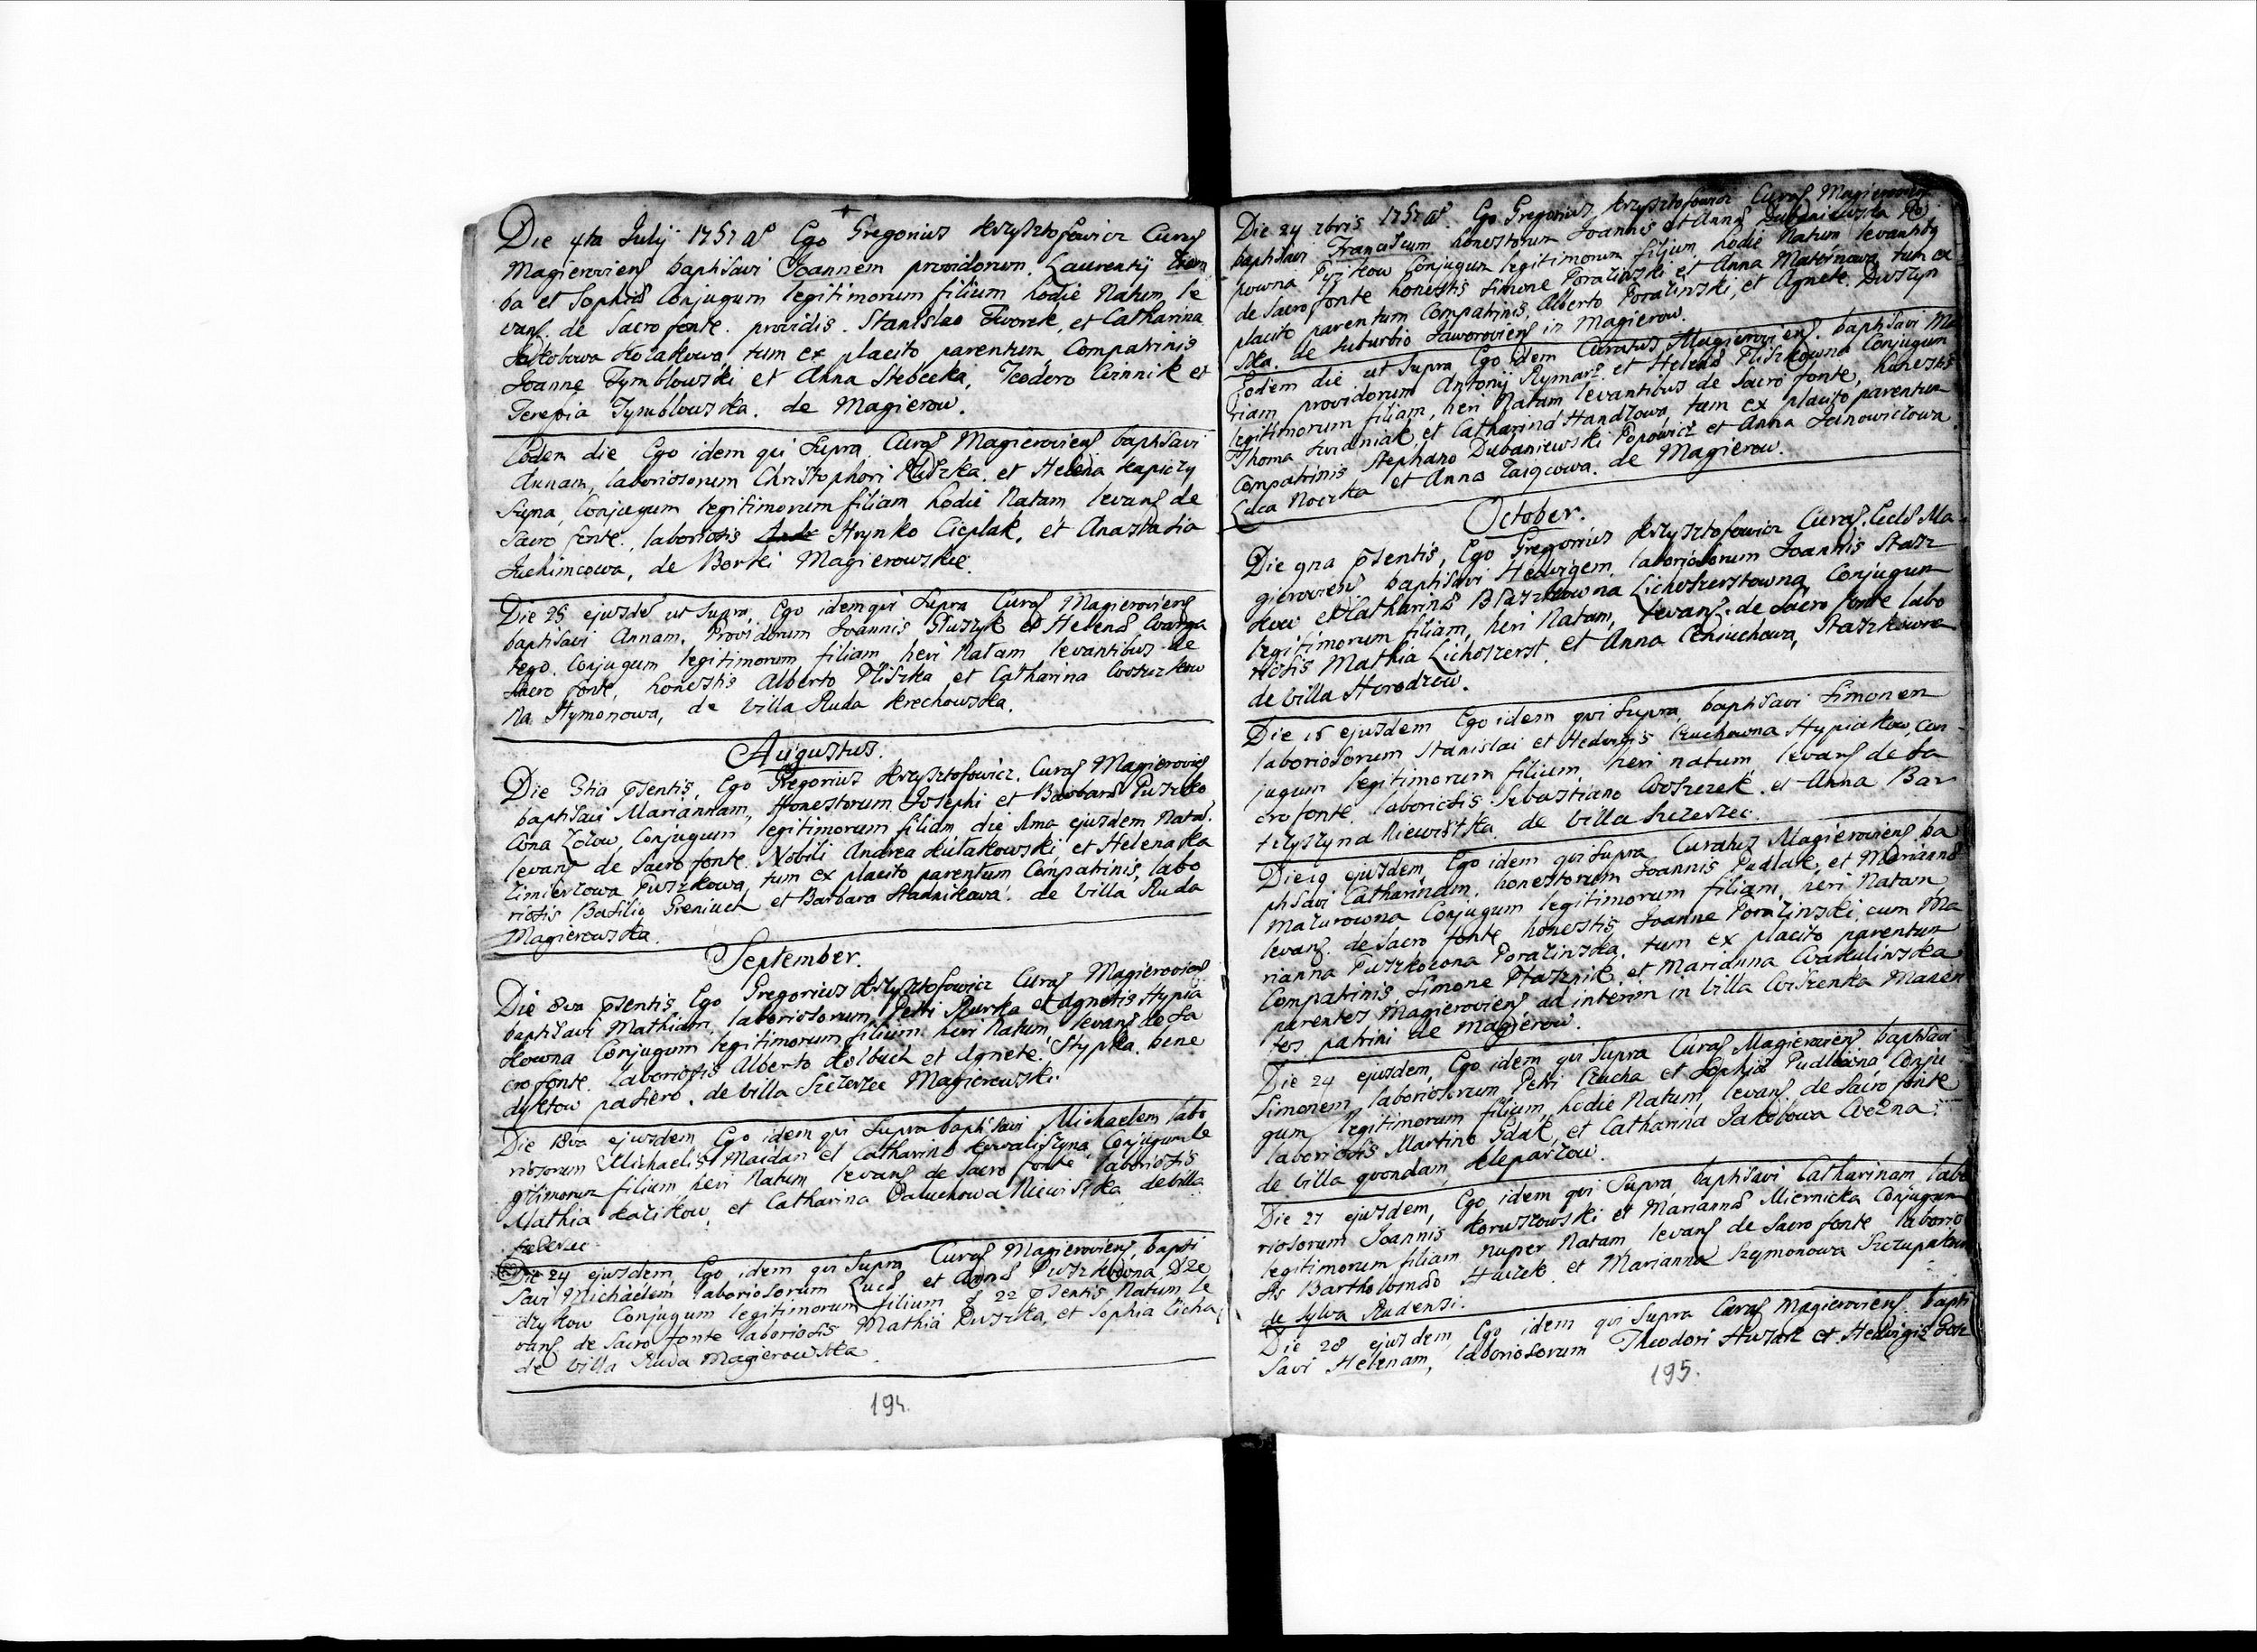 Die 4ta Julij 1757 a° Ego Gregorius Krzysztofowicz Curas
Magieroviens baptisavi Joannem providorum Laurentij
ba et Sophia Conjugum legitimorum filium hodie Natum le
vans. de Sacro fonte. providis. Stanislao Tworek, et Catharina
Jakobowa Kozakowa, tum ex placito parentum, Compatrinis
Joanne Tymblowski et Anna Stebecka, Teodoro Winnik et
Teresia Tymblowska. de Magierow.
Eodem die Ego idem qui Supra Curas Magieroviens baptisavi
Annam, laboriosorum Christophori Pliszka. et Helena Kapiczy
Suyna, Conjugum legitimorum filiam, hodie Natam, levans de
Sacro fonte, laboriosis Hrynko Cieplak, et Anastasia
Juchimcowa, de Borki Magierowskie.
Die 25 ejusde ut Supra, Ego idem qui Supra Curas Magieroviens
baptisavi Annam, Providorum Joannis Pluszyk et Helena
Conjugum legitimorum filiam heri Natam levantibus de
Sacro fonte, honestis Alberto Pliszka et Catharina
na Hymonowa, de Villa Ruda Krechowska.
Augustus.
Die 3tia psentis, Ego Gregorius Krzysztofowicz, Curas Magierovies
baptisavi Mariannam, Honestorum Josephi et Barbara Puszko
wna Zołow, Conjugum legitimorum filiam die ima ejusdem Nata.
levans de Sacro fonte. Nobili Andrea Kułakowski, et Helena Ka
zimierzowa Puszkowa, tum ex placito parentum Conpatrinis, labo
riosis Basilio Greniuch et Barbara Stannikowa. de Villa Ruda
Magierowska.
September.
Die 8va psentis, Ego Gregorius Krzysztofowicz Curas Magierovies
baptisavi Mathiam, laboriosorum Petri Skurka et Agnetis Hypia
kowna Conjugum legitimorum filium heri Natum, levans de Sa
cro fonte. laboriosis Alberto Kolbuch et Agnete. Stypka. bene
dyktow pasiero. de Villa Szczerzec Magierowski.
Die 18va ejusdem Ego idem qui Supra baptisavi Michaelem labo
riosorum Michaelis Maidan et Catharina Kowaliszyna Conjugum le
gitimorum filium heri Natum levans de Sacro fonte laboriosis
Mathia Kazikow, et Catharina Daluchowa Niewistka de Villa
Die 24 ejusdem, Ego idem qui Supra Curas Magieroviens, bapti
savi Michaelem laboriosorum Luca et Anna Puszkowna Dze
dzykow Conjugum legitimorum filium d 22 psentis Natum le
vans de Sacro fonte laboriosis Mathia Puszka, et Sophia Licha
de Villa Ruda Magierowska.
194.
Die 24 7bris 1757 a°. Ego Gregorius Krzysztofowicz Curas Magierovien
baptisavi Franciscum honestorum Joannis et Anna Dubaniewska Po
powna Pyzikow Conjugum legitimorum filium, hodie Natum levantibq
de Sacro fonte honestis Simone Poraziński et Anna Maternowa, tum ex
placito parentum Compatrinis, Alberto Poraziński, et Agnete Duszyn
ska. de Suburbio Jaworoviens in Magierow.
Eodem die ut Supra Ego idem Curatus Magieroviens. baptisavi Ma
riam providorum Antonij Rymarz. et Helena Pliszkowna Conjugum
legitimorum filiam, heri Natam levantibus de Sacro fonte, honestis
Thoma Swidniak et Catharina Handzowa, tum ex placito parentum
Compatrinis Stephano Dubaniewski Popowicz et Anna Janowiczowa.
Luca Noczka et Anna Zaigcowa. de Magierow.
October.
Die 9na psentis, Ego Gregorius Krzysztofowicz Curas. Eccls Ma
gieroviens baptisavi Hedvigem, laboriosorum Joannis Stasz
kow et Catharina Błaszkowna Lichoszerstowna Conjugum
legitimorum filiam, heri Natam, levans. de Sacro fonte labo
riosis Mathia Lichoszerst, et Anna Cehuchowa, Staszkowna
de Villa Horodzow.
Die 15 ejusdem Ego idem qui Supra, baptisavi Simonem
laboriosorum Stanislai et Hedvigis Czuchowna Hypiakow, Con
jugum legitimorum filium, heri natum, levans de Sa
cro fonte, laboriosis Sebastiano Woszczek, et Anna Bar
tczyszyna Niewistka de Villa Szczerzec.
Die 19 ejusdem, Ego idem qui Supra Curatus Magieroviens ba
ptisavi Catharinam, honestorum Joannis Pudlak, et Marianna
Mazurowna Conjugum legitimorum filiam, heri Natam
levans. de Sacro fonte honestis Joanne Poraziński, cum Ma
rianna Puszkowna Porazinska, tum ex placito parentum
Compatrinis, Simone Ptasznik, et Marianna Wakulinska
parentes Magieroviens ad interim in Villa Wiszenka Manen
tes, patrini de Magierow.
Die 24 ejusdem, Ego idem qui Supra Curas Magieroviens baptisavi
Simonem, laboriosorum Petri Czucha et Sophia Pudlowna, Conju
gum legitimorum filium, hodie Natum, levans. de Sacro fonte
laboriosis Martino Gdak, et Catharina Jakobowa
de Villa quondam, Kleparzow.
Die 27 ejusdem, Ego idem qui Supra, baptisavi Catharinam labo
riosorum Joannis Koruszowski et Marianna Miernicka Conjugum
legitimorum filiam nuper Natam levans de Sacro fonte laborio
sis Bartholomeo et Marianna Szymonowa
de Sylva Rudensi.
Die 28 ejusdem, Ego idem qui Supra Curas Magieroviens. bapti
savi Helenam, laboriosorum Theodori Husak et Hedvigis
195.